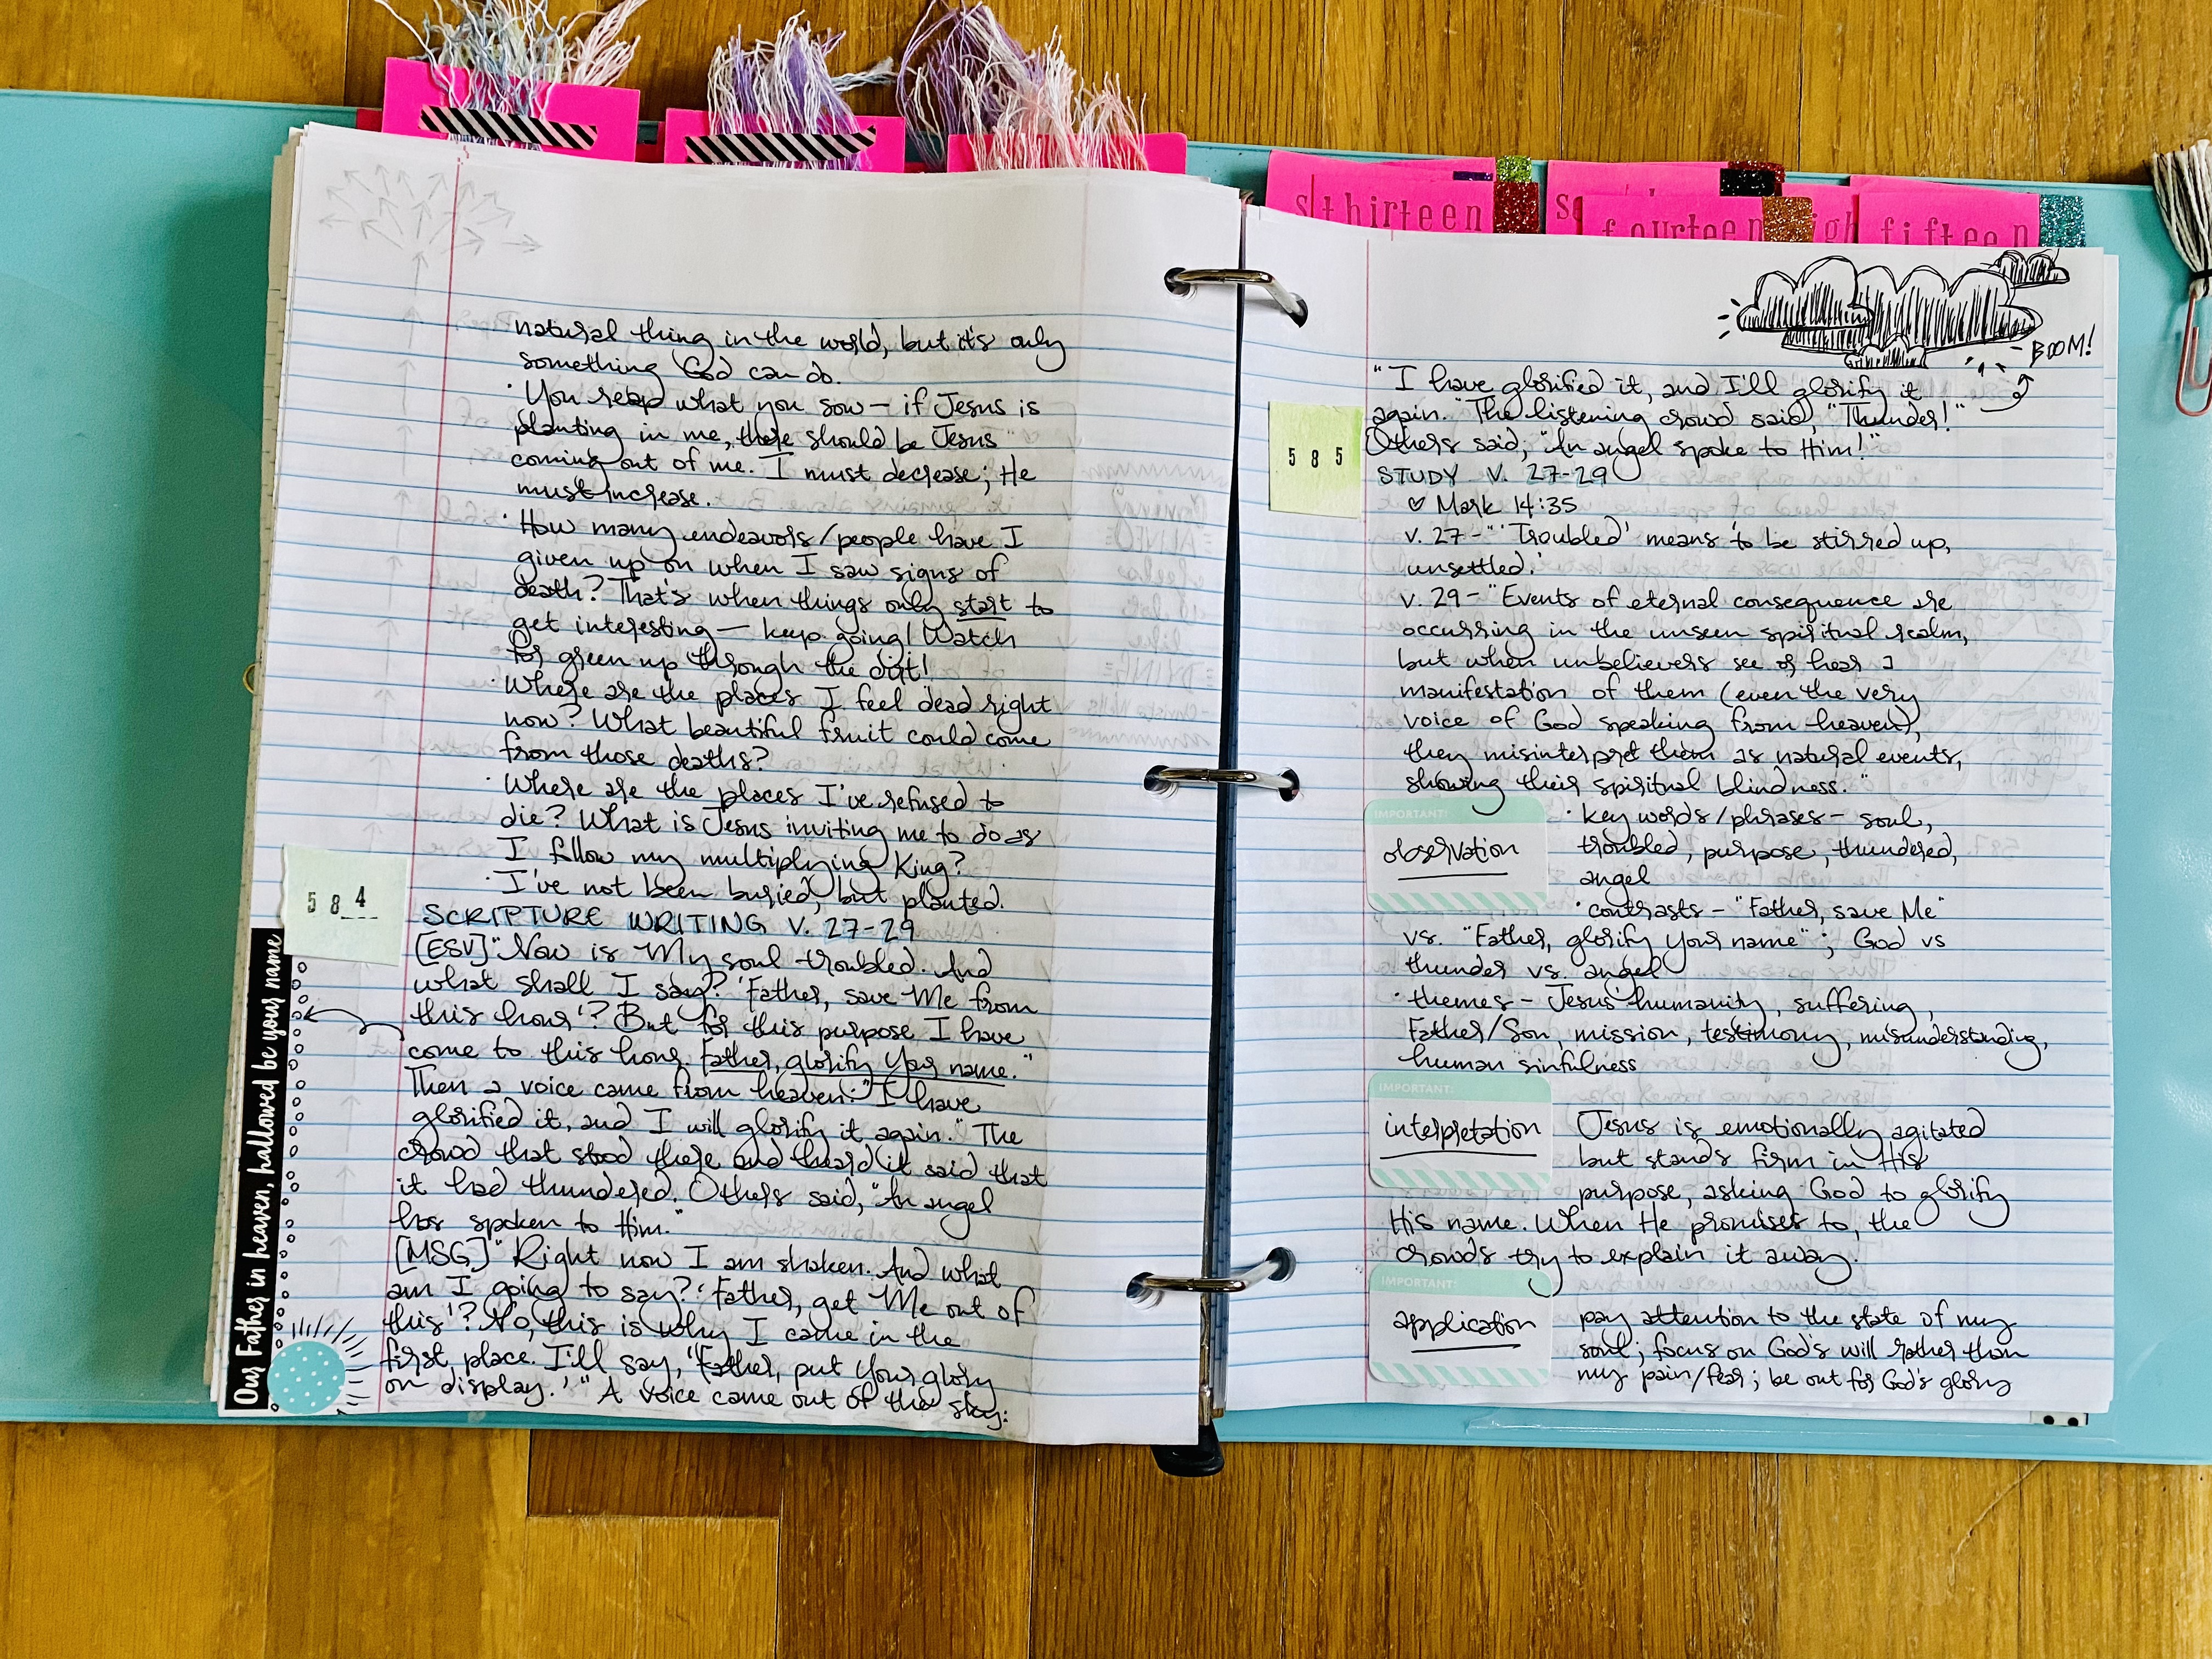 natural thing in the world, but it's only
something God can do.
· You reap what you sow — if Jesus is
planting in me, there should be Jesus
coming out of me. I must decrease; He
must increase.
· How many endeavors/people have I
given up on when I saw signs of
death? That's when things only start to
get interesting — keep going! Watch
for green up through the dirt!
· Where are the places I feel dead right
now? What beautiful fruit could come
from those deaths?
· Where are the places I've refused to
die? What is Jesus inviting me to do as
I follow my multiplying King?
· I've not been buried, but planted.
584
SCRIPTURE WRITING V. 27-29
[ESV] "Now is My soul troubled. And
what shall I say? 'Father, save Me from
this hour'? But for this purpose I have
come to this hour. Father, glorify Your name."
Then a voice came from heaven: "I have
glorified it, and I will glorify it again." The
crowd that stood there and heard it said that
it had thundered. Others said, "An angel
has spoken to Him."
[MSG] "Right now I am shaken. And what
am I going to say? 'Father, get Me out of
this'? No, this is why I came in the
first place. I'll say, 'Father, put Your glory
on display.'" A voice came out of the sky:
Our Father in heaven, hallowed be your name
thirteen
fourteen
fifteen
BOOM!
"I have glorified it, and I'll glorify it
again." The listening crowd said, "Thunder!"
Others said, "An angel spoke to Him!"
585
STUDY V. 27-29
♡ Mark 14:35
v. 27 - "'Troubled' means 'to be stirred up,
unsettled.'
v. 29 - "Events of eternal consequence are
occurring in the unseen spiritual realm,
but when unbelievers see or hear a
manifestation of them (even the very
voice of God speaking from heaven),
they misinterpret them as natural events,
showing their spiritual blindness."
IMPORTANT:
observation
· key words/phrases - soul,
troubled, purpose, thundered,
angel
· contrasts - "Father, save Me"
vs. "Father, glorify Your name"; God vs
thunder vs. angel
· themes - Jesus' humanity, suffering,
Father/Son, mission, testimony, misunderstanding,
human sinfulness
IMPORTANT:
interpretation
Jesus is emotionally agitated
but stands firm in His
purpose, asking God to glorify
His name. When He promises to, the
crowds try to explain it away.
IMPORTANT:
application
pay attention to the state of my
soul; focus on God's will rather than
my pain/fear; be out for God's glory